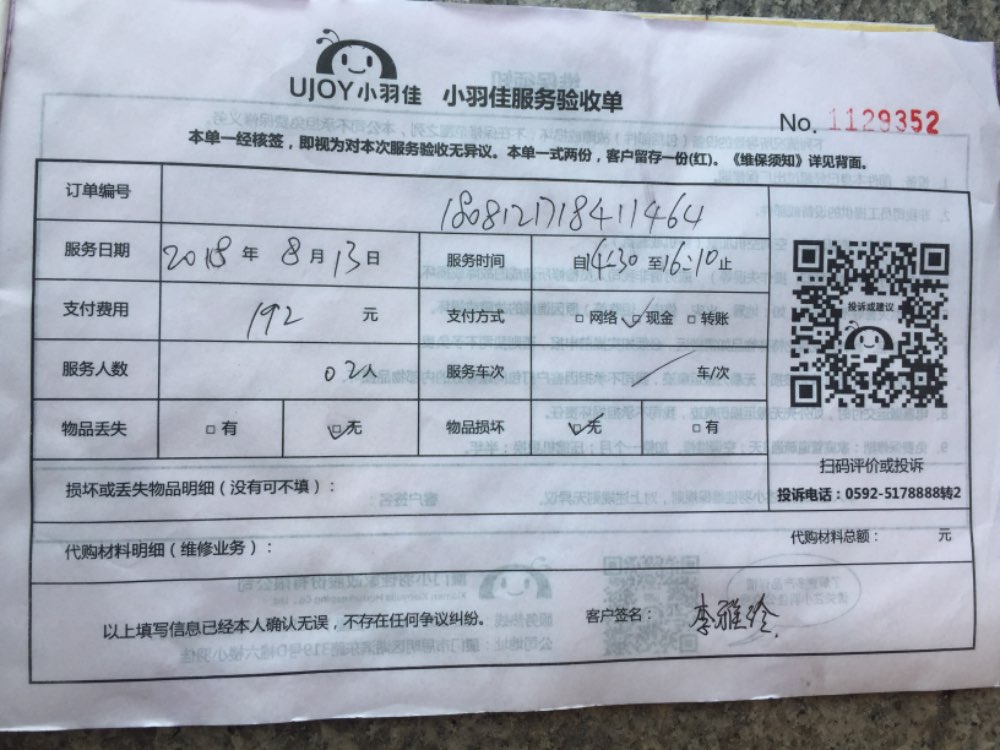 UJOY小羽佳 小羽佳服务验收单
No. 1129352
本单一经核签，即视为对本次服务验收无异议。本单一式两份，客户留存一份(红)。《维保须知》详见背面。
订单编号 180812171841​1464
服务日期 2018年8月13日 服务时间 自14:30至16:10止
支付费用 192元 支付方式 □网络 ☑现金 □转账
服务人数 02人 服务车次 / 车/次
物品丢失 □有 ☑无 物品损坏 ☑无 □有
投诉或建议
扫码评价或投诉
投诉电话：0592-5178888转2
损坏或丢失物品明细（没有可不填）：
代购材料明细（维修业务）： 代购材料总额： 元
以上填写信息已经本人确认无误，不存在任何争议纠纷。 客户签名： 李雅玲